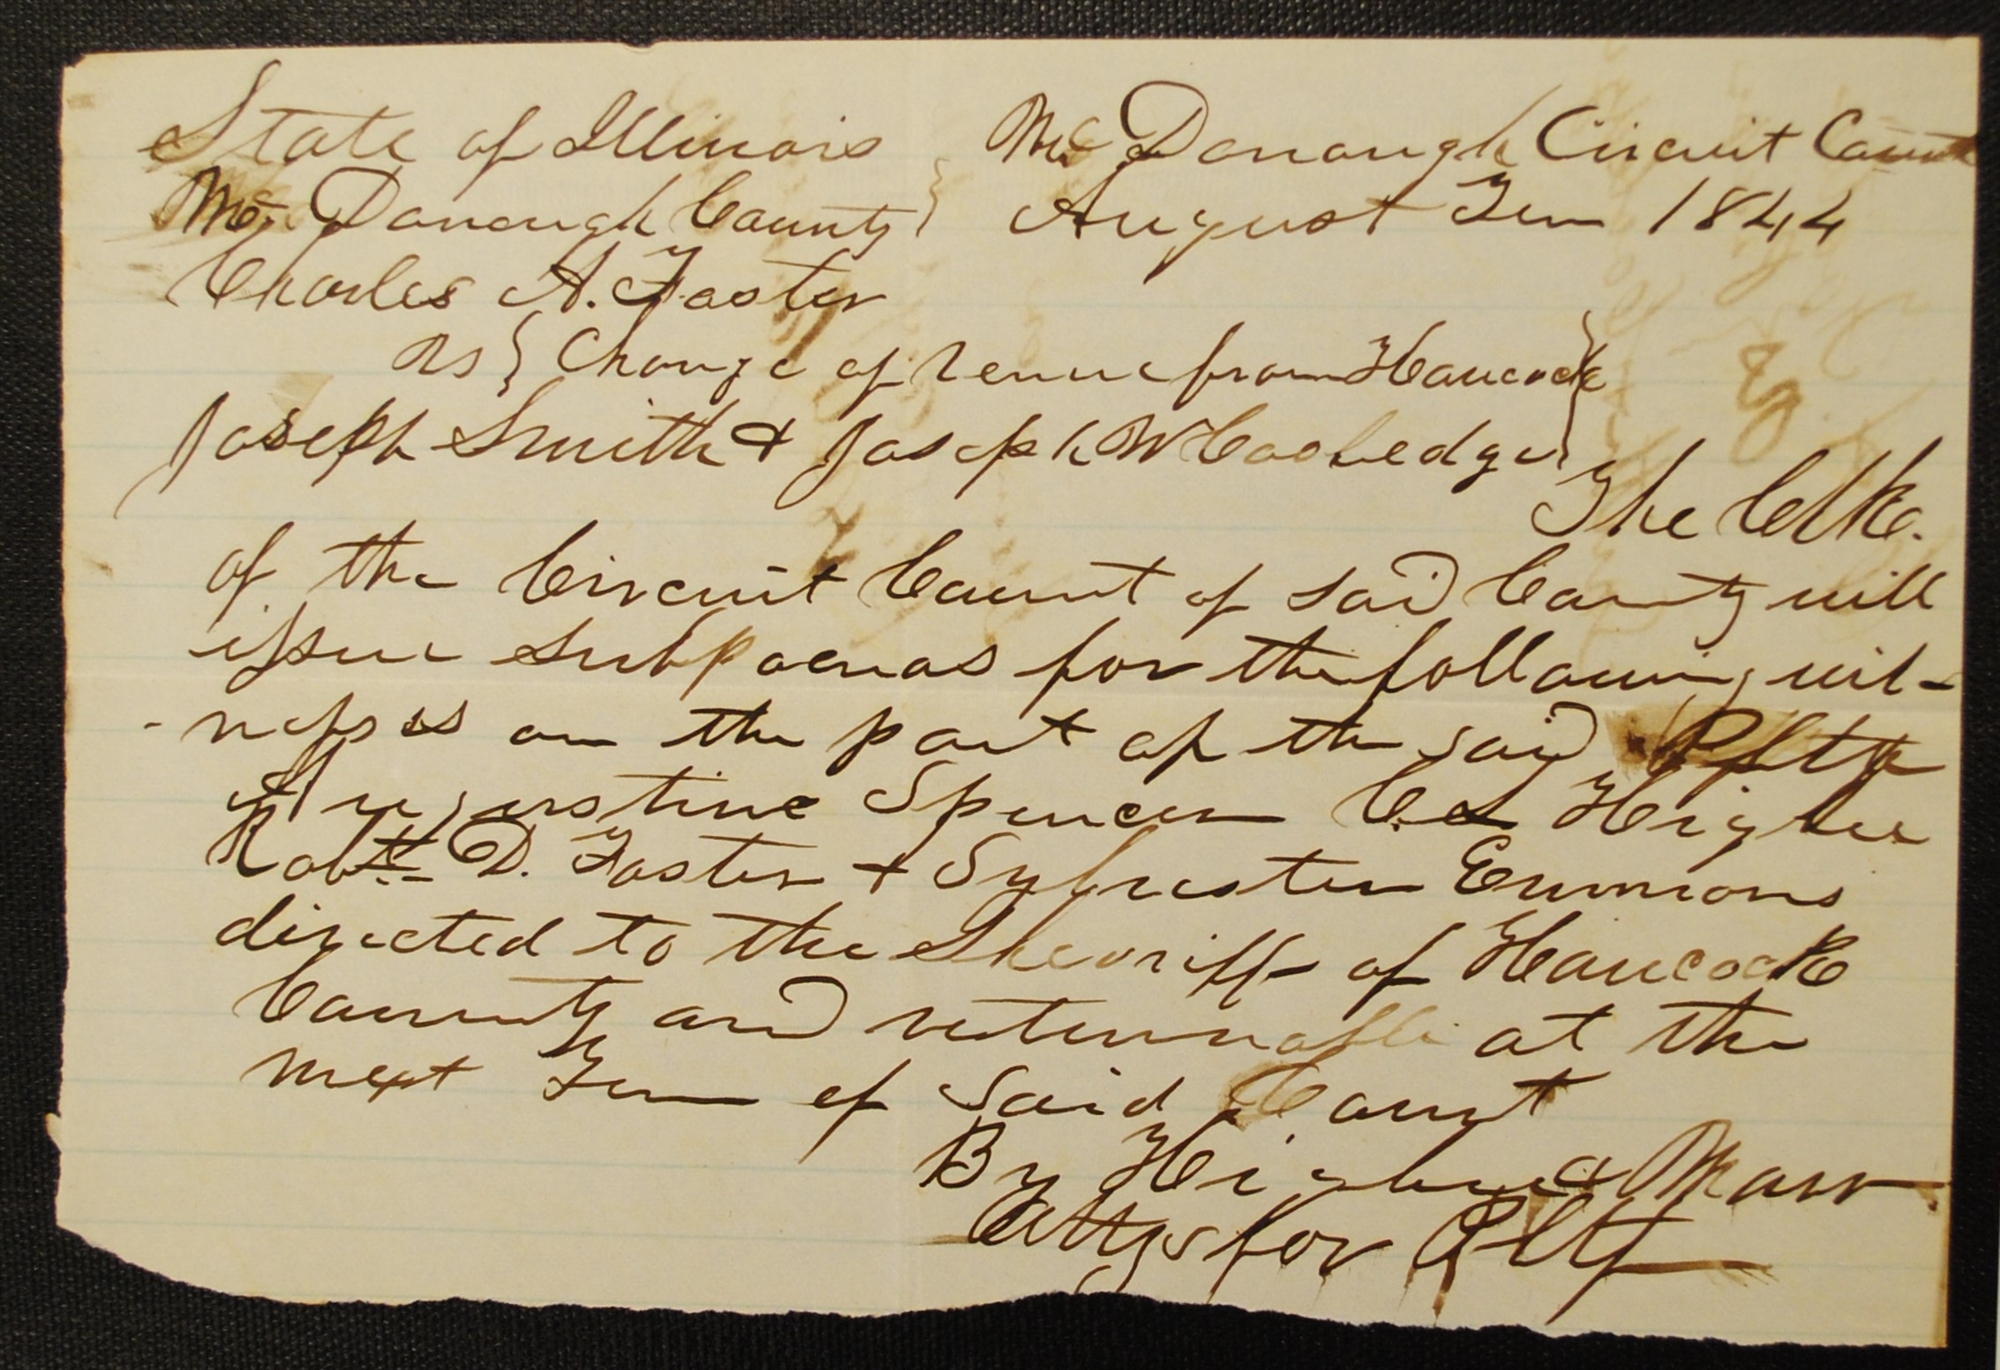 State of Illinois } McDonough Circuit Court
McDonough County } August Term 1844
Charles A. Foster
vs } Change of Venue from Hancock }
Joseph Smith & Joseph W Cooledge }
The Clk.
of the Circuit Court of said County will
issue Subpoenas for the following wit-
-nesses on the part of the said Pltff
Augustine Spencer C. L. Higbee
Robtt. D. Foster & Sylvester Emmons
directed to the Sherriff of Hancock
County and returnable at the
next Term of Said Court
By Higbee & Marr
Attys for Pltf